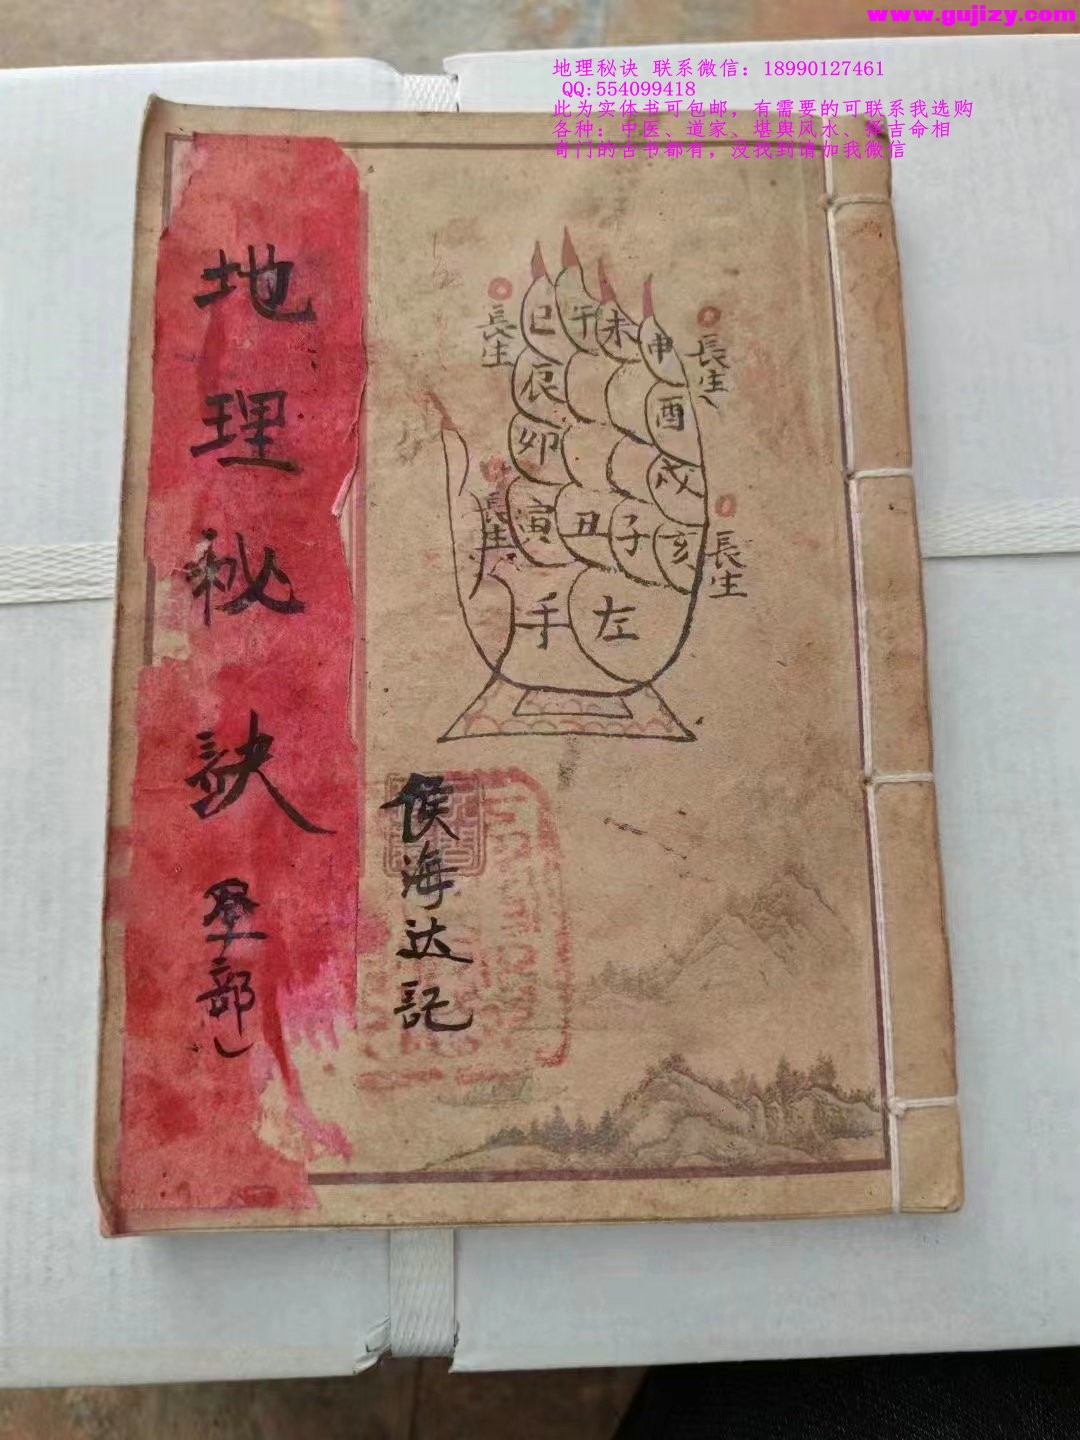 www.gujizy.com
地理秘诀 联系微信：18990127461
QQ:554099418
此为实体书可包邮，有需要的可联系我选购
各种：中医、道家、堪舆风水、择吉命相
奇门的古书都有，没找到请加我微信
地理秘訣
部
巳
午
未
申
辰
酉
卯
戌
寅
丑
子
亥
長生
長生
長生
長生
左手
侯海达記